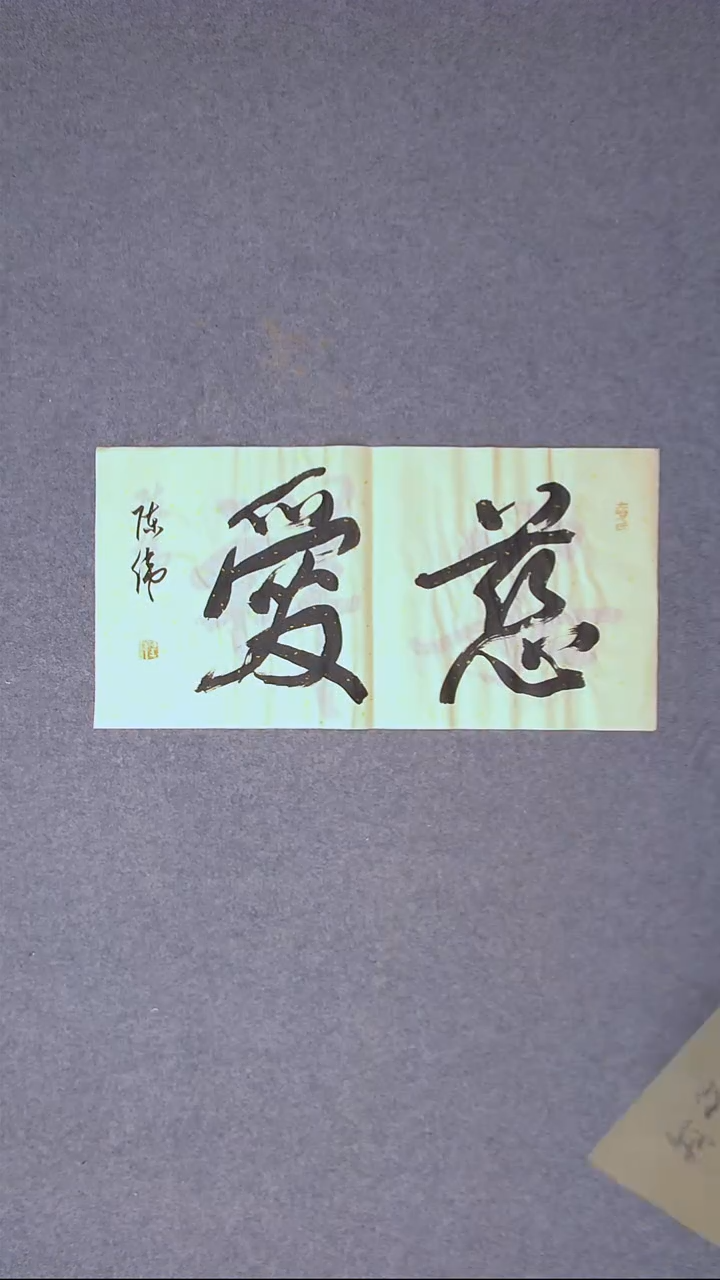 慈愛
陈伟